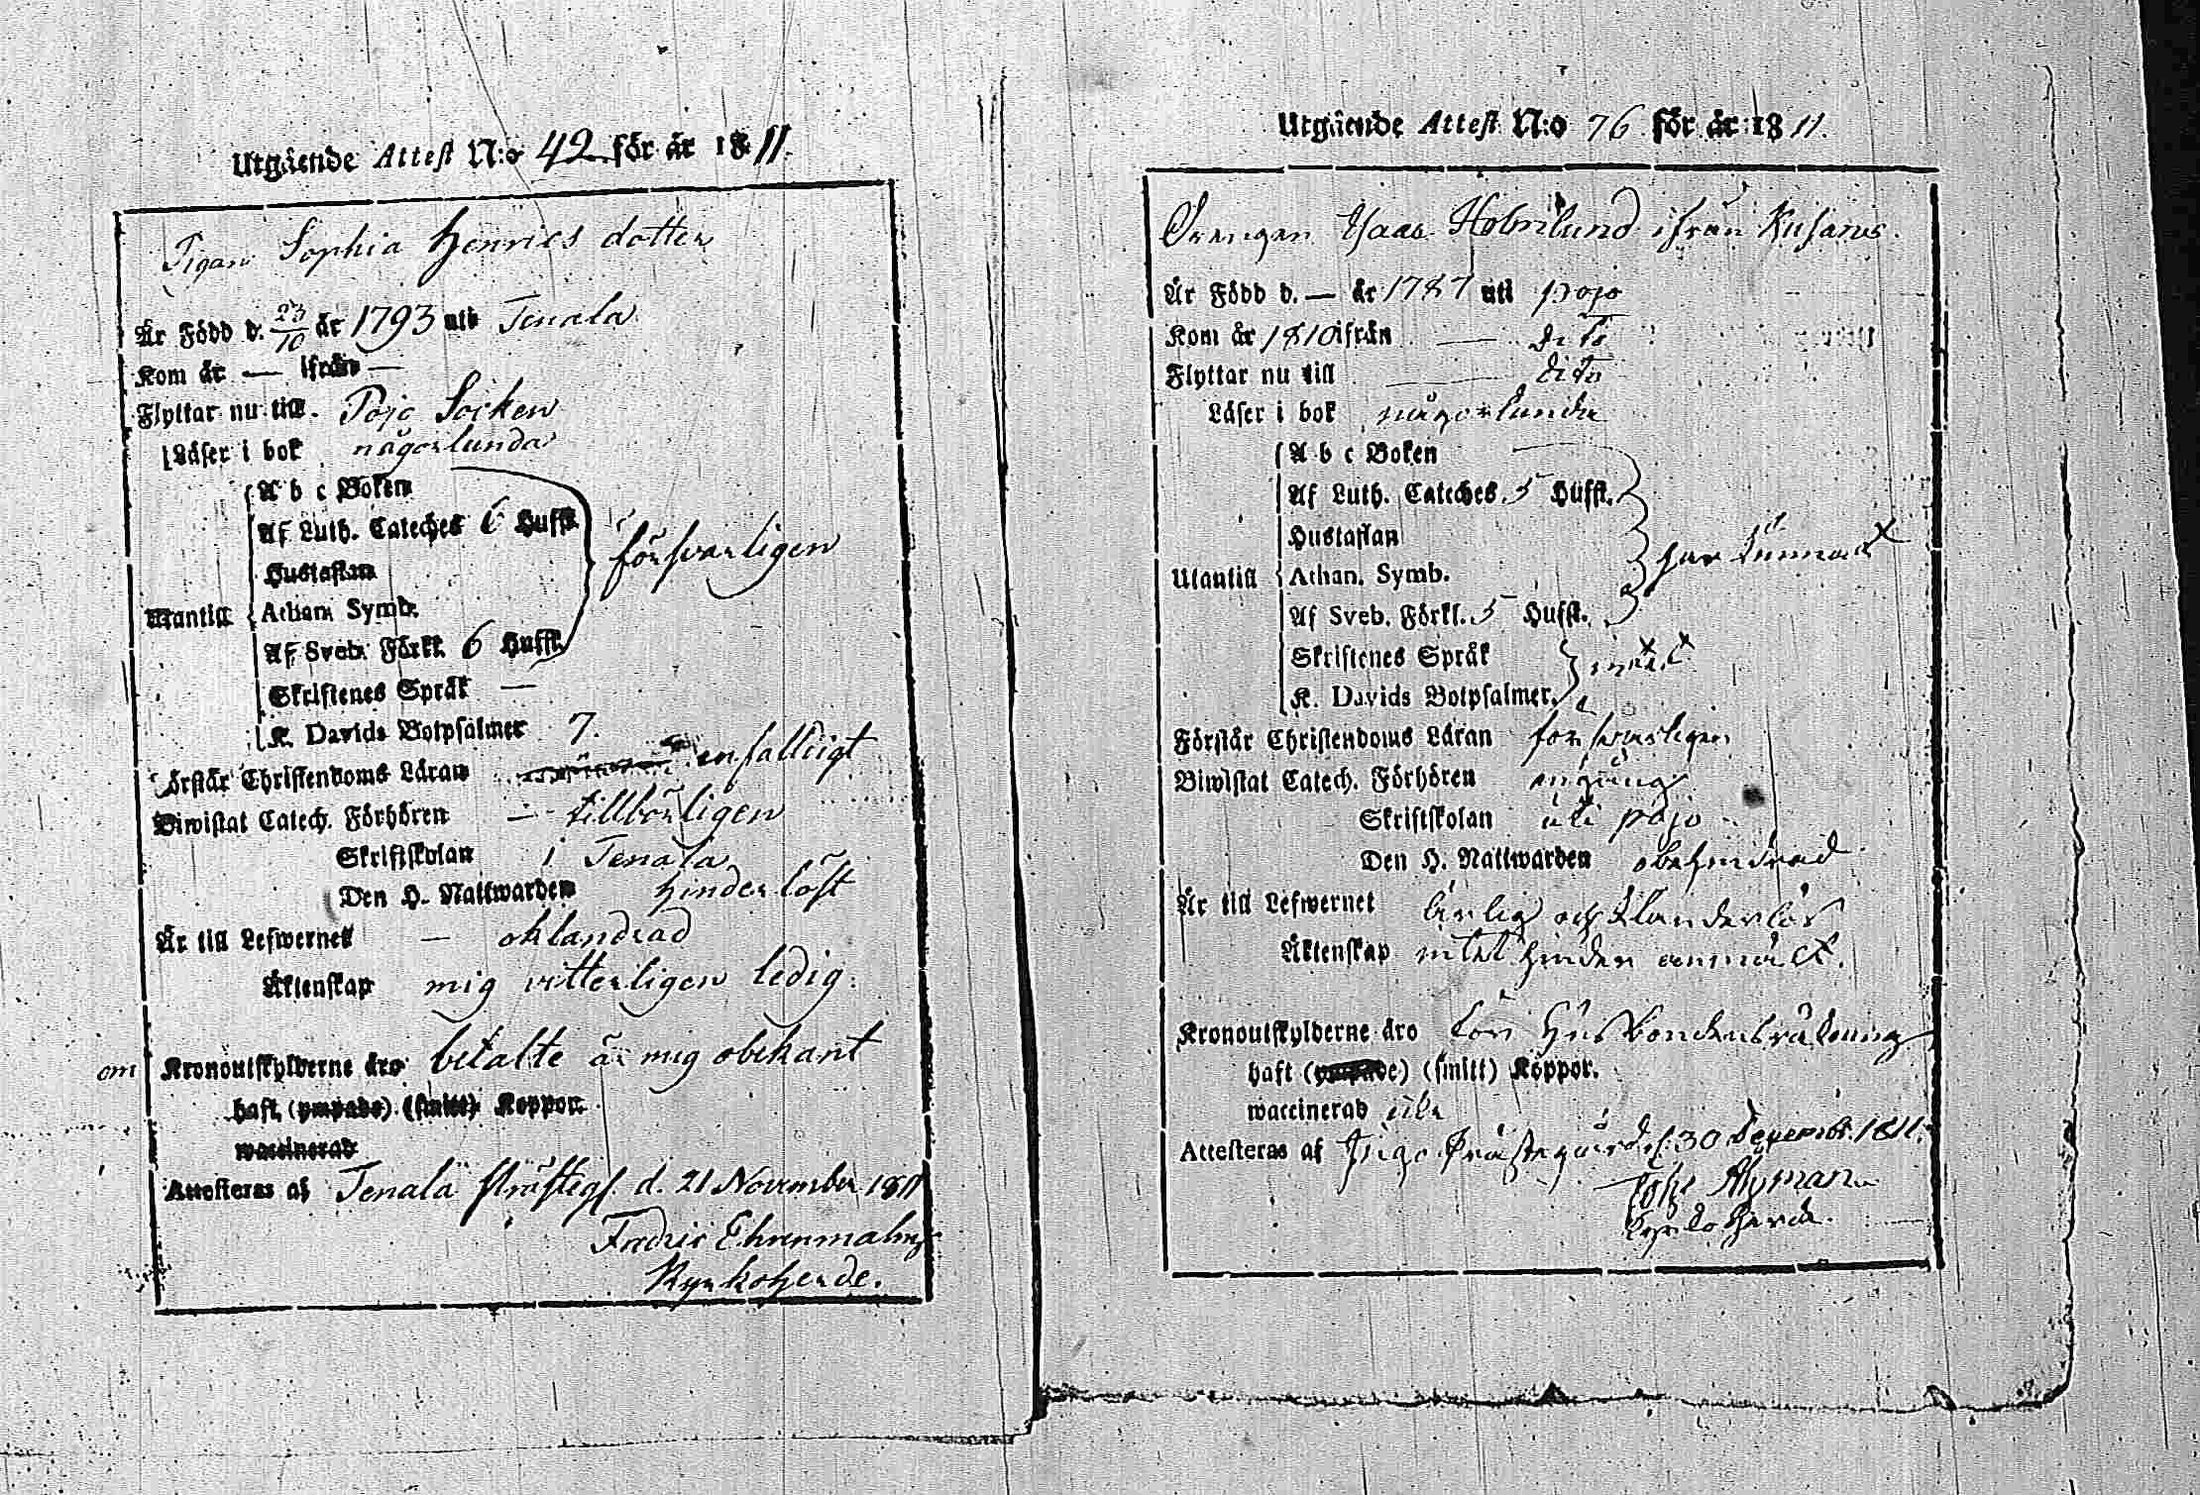 Utgående Attest N:o 42 för år 1811.
Pigan Sophia Henrics dotter
Är Född d. 23/10 år 1793 uti Tenala
Kom år — ifrån —
Flyttar nu till. Pojo Socken
Läser i bok någorlunda
A b c Boken
Af Luth. Cateches 6 Hufst.
Hustaflan
försvarligen
Utantill
Athan. Symb.
Af Sveb. Förkl. 6 Hufst.
Skriftenes Språk —
K. Davids Botpsalmer 7.
Förstår Christendoms Läran enfalldigt
Biwistat Catech. Förhören — tillbörligen
Skriftskolan i Tenala
Den H. Nattwarden hinderlöst
Är till Lefwernet — oklandrad
Äktenskap mig vitterligen ledig.
om Kronoutskylderne äro betalte är mig obekant
haft (ympade) (smitt) Koppor.
waccinerad
Attesteras af Tenala Prästeg. d. 21 November 1811
Fredric Ehrenmalm
Kyrkoherde.
Utgående Attest N:o 76 för år 1811.
Drengen Isaac Holmlund ifrån
Är Född d. — år 1787 uti Pojo
Kom år 1810 ifrån — dito
Flyttar nu till — dito
Läser i bok någorlunda
A b c Boken
Af Luth. Cateches 5 Hufst.
Hustaflan
har lemnat
Utantill
Athan. Symb.
Af Sveb. Förkl. 5 Hufst.
Skriftenes Språk
K. Davids Botpsalmer.
Förstår Christendoms Läran försvarligen
Biwistat Catech. Förhören
Skriftskolan uti Pojo
Den H. Nattwarden obehindrad
Är till Lefwernet ärlig och klanderlös
Äktenskap intet hinder anmält.
Kronoutskylderne äro
haft (ympade) (smitt) Koppor.
waccinerad
Attesteras af Prästegård d. 30 December 1811.
Ahlman
Kyrkoherde.